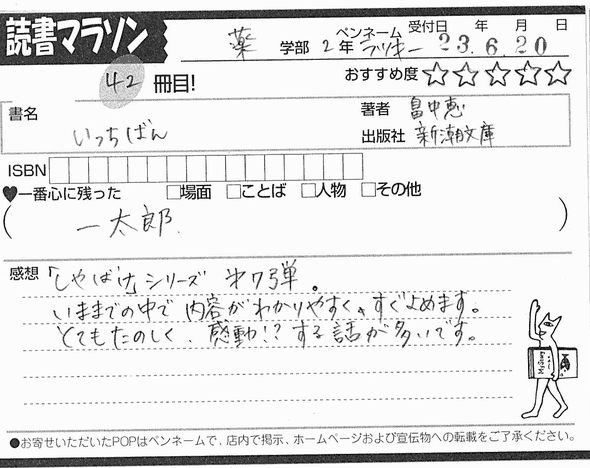 読書マラソン
薬 学部 2年 ペンネーム ラッキー 受付日 年 月 日 23.6.20
42 冊目! おすすめ度 ☆☆☆☆☆
書名 いっちばん
著者 畠中恵
出版社 新潮文庫
ISBN
♥一番心に残った □場面 □ことば □人物 □その他
( 一太郎. )
感想 「しゃばけ」シリーズ 第7弾。
いままでの中で 内容がわかりやすく、すぐよめます。
とてもたのしく、感動!?する話が多いです。
●お寄せいただいたPOPはペンネームで、店内で掲示、ホームページおよび宣伝物への転載をご了承ください。